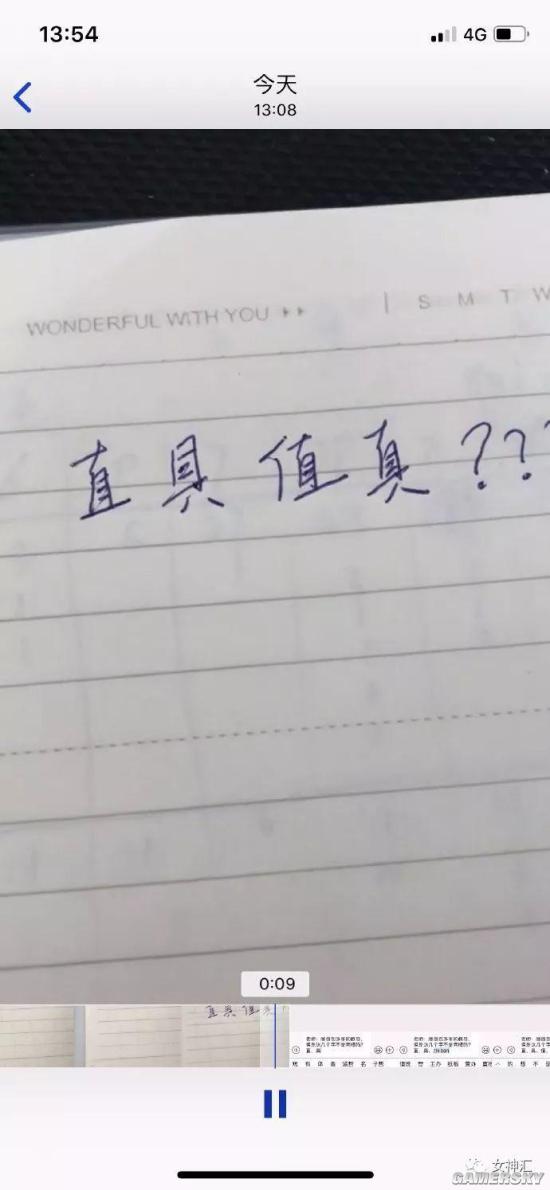 13:54
4G
今天
13:08
WONDERFUL WITH YOU
S M T W
直具值真???
0:09
直具值真
女神汇
GAMERSKY